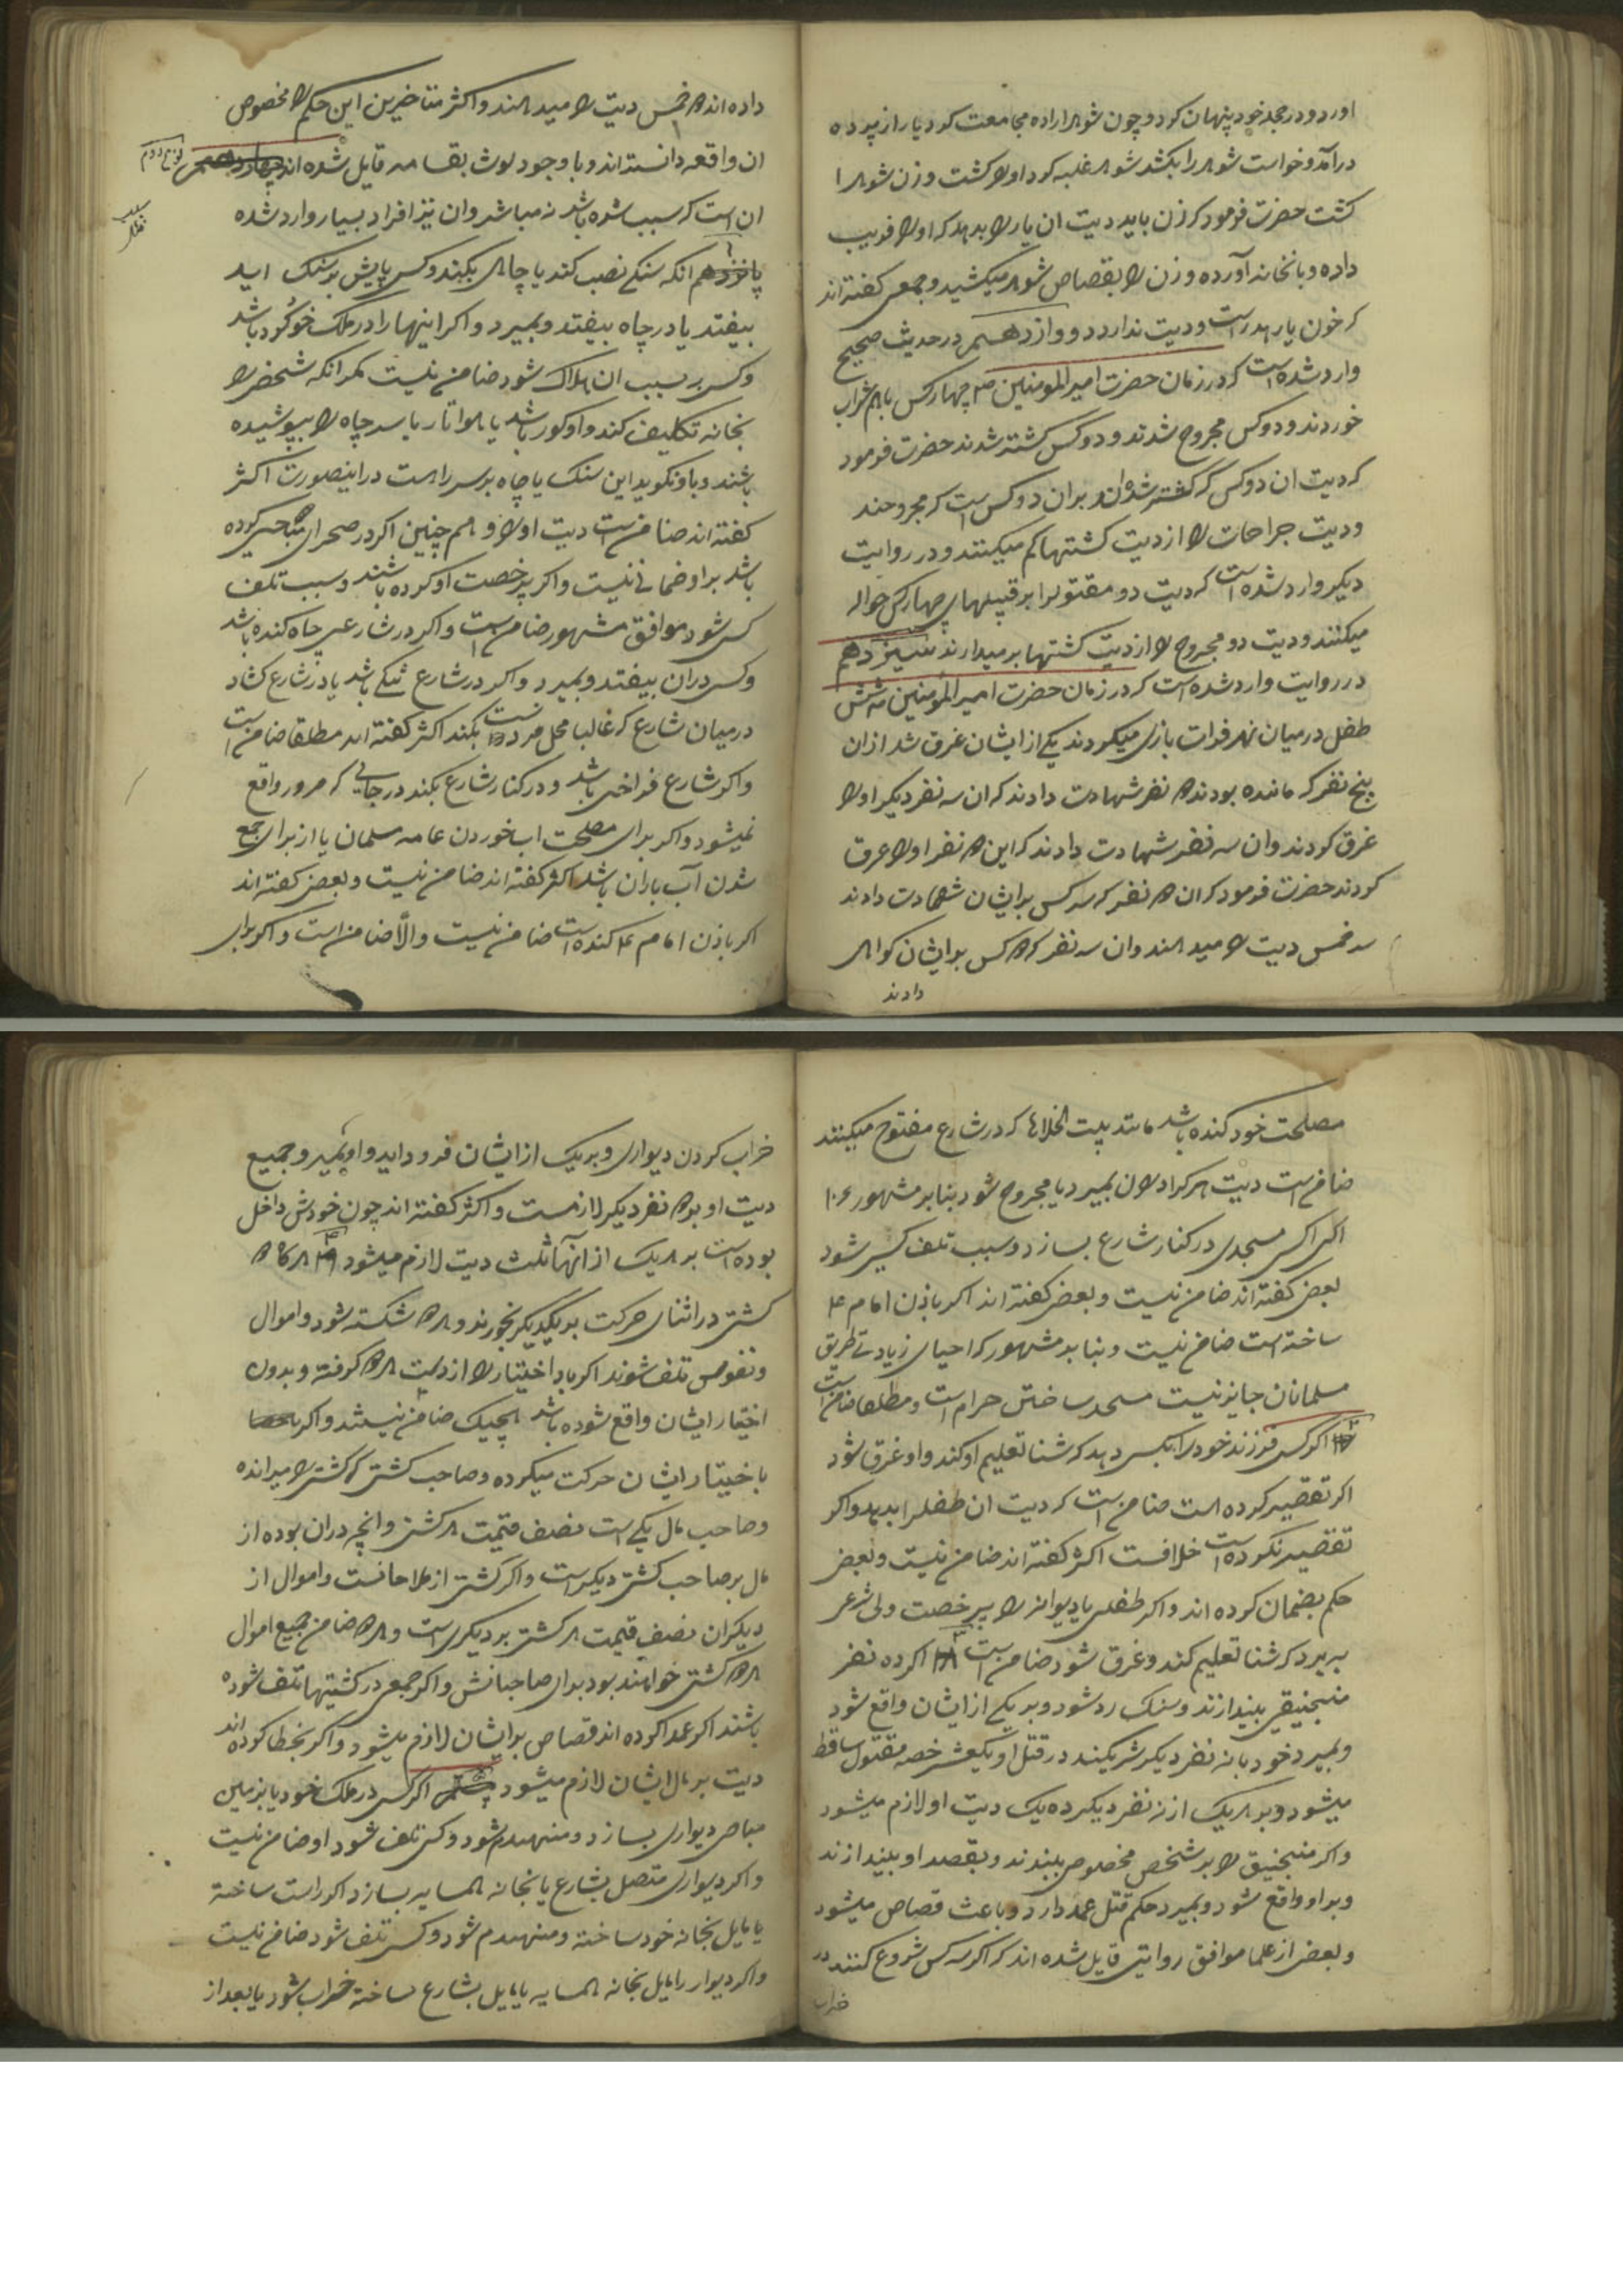 اورد و در حجله خود پنهان کرد و چون شوهر اراده مجامعت کرد یار از پرده
درآمد و خواست شوهر را بکشد شوهر غلبه کرد او را کشت و زن شوهر را
کشت حضرت فرمود که زن باید دیت ان یار را بدهد که او را فریب
داده و بانخانه آورده و زن را بقصاص شوهر میکشید و جمعی کفته اند
که خون یار هدر است و دیت ندارد و دوازدهم در حدیث صحیح
وارد شده است که در زمان حضرت امیر المومنین ع چهار کس باهم شراب
خوردند و دو کس مجروح شدند و دو کس کشته شدند حضرت فرمود
که دیت ان دو کس که کشته شده اند بران دو کس است که مجروحند
و دیت جراحات را از دیت کشتها کم میکنند و در روایت
دیکر وارد شده است که دیت دو مقتول را بر قبیلهای چهار کس حواله
میکنند و دیت دو مجروح را از دیت کشتها بر میدارند سیزدهم
در روایت وارد شده است که در زمان حضرت امیر المؤمنین ع شش
طفل در میان نهر فرات بازی میکردند یکی از ایشان غرق شد از ان
پنج نفر که مانده بودند دو نفر شهادت دادند که ان سه نفر دیکر او را
غرق کردند و ان سه نفر شهادت دادند که این دو نفر او را غرق
کردند حضرت فرمود که ان دو نفر که سه کس بر ایشان شهادت دادند
سه خمس دیت را میدهند و ان سه نفر که دو کس بر ایشان کواهی
دادند
داده اند دو خمس دیت را میدهند و اکثر متاخرین این حکم را مخصوص
ان واقعه دانسته اند و با وجود لوث بقسامه قایل شده اند چهاردهم
نوع دوم
ان است که سبب شده باشد نه مباشر و ان نیز افراد بسیار وارد شده
پانزدهم انکه سنکی نصب کند یا چاهی بکند و کسی پایش بر سنک اید
بیفتد یا در چاه بیفتد و بمیرد و اکر اینها را در ملک خود کرد باشد
و کسی بسبب ان هلاک شود ضامن نیست مکر انکه شخصی را
بخانه تکلیف کند و او کور باشد یا هوا تار یا سر چاه را پوشیده
باشند و باو نکوید این سنک یا چاه بر سر راهست در اینصورت اکثر
کفته اند ضامن است دیت او را و هم چنین اکر در صحرای مباحی کرده
باشد بر او ضمانی نیست و اکر برخصت او کرده باشند و سبب تلف
کسی شود موافق مشهور ضامن است و اکر در شارعی چاه کنده باشد
و کسی دران بیفتد و بمیرد و اکر در شارع تنکی باشد یا در شارع کشاد
در میان شارع که غالبا محل تردد است بکند اکثر کفته اند مطلقا ضامن است
و اکر شارع فراخی باشد و در کنار شارع بکند در جایی که مرور واقع
نمیشود و اکر برای مصلحت اب خوردن عامه مسلمانان یا از برای جمع
شدن آب باران باشد اکثر کفته اند ضامن نیست و بعضی کفته اند
اکر باذن امام ع کنده است ضامن نیست والّا ضامن است و اکر برای
مصلحت خود کنده باشد مانند بیت الخلاها که در شارع مفتوح میکنند
ضامن است دیت هر که را در ان بمیرد یا مجروح شود بنا بر مشهور
اکر کسی مسجدی در کنار شارع بسازد و سبب تلف کسی شود
بعضی کفته اند ضامن نیست و بعضی کفته اند اکر باذن امام ع
ساخته است ضامن نیست و بنا بر مشهور که احیای زیادتی طریق
مسلمانان جایز نیست مسجد ساختن حرام است و مطلقا ضامن است
اکر کسی فرزند خود را بکسی دهد که شنا تعلیم او کند و او غرق شود
اکر تقصیر کرده است ضامن است که دیت ان طفل را بدهد و اکر
تقصیر نکرده است خلافست اکثر کفته اند ضامن نیست و بعضی
حکم بضمان کرده اند و اکر طفلی یا دیوانه را بی رخصت ولی شرعی
به برد که شنا تعلیم کند و غرق شود ضامن است اکر ده نفر
منجنیقی بیندازند و سنک رد شود و بر یکی از ایشان واقع شود
و بمیرد خود با نه نفر دیکر شریکند در قتل او یکعشر حصه مقتول ساقط
میشود و بر هر یک از نه نفر دیکر ده یک دیت او لازم میشود
و اکر منجنیق را بر شخص مخصوص ببندند و بقصد او بیندازند
و بر او واقع شود و بمیرد حکم قتل عمد دارد و باعث قصاص میشود
و بعضی از علما موافق روایتی قایل شده اند که اکر سه کس شروع کنند در
خراب
خراب کردن دیواری و بر یک از ایشان فرود اید و او بمیرد جمیع
دیت او بر دو نفر دیکر لازمست و اکثر کفته اند چون خودش داخل
بوده است بر هر یک از آنها ثلث دیت لازم میشود هر کاه دو
کشتی در اثنای حرکت بر یکدیکر بخورند و هر دو شکسته شود و اموال
و نفوس تلف شوند اکر باد اختیار را از دست هر دو کرفته و بدون
اختیار ایشان واقع شوده باشد هیچیک ضامن نیستند و اکر
باختیار ایشان حرکت میکرده و صاحب کشتی که کشتی را میرانده
و صاحب مال یکی است نصف قیمت هر کشتی و انچه دران بوده از
مال بر صاحب کشتی دیکر است و اکر کشتی از ملاحانست و اموال از
دیکران نصف قیمت هر کشتی بر دیکری است و هر دو ضامن جمیع اموال
هر دو کشتی خواهند بود برای صاحبانش و اکر جمعی در کشتیها تلف شوده
باشند اکر عمدا کرده اند قصاص بر ایشان لازم میشود و اکر بخطا کرده اند
دیت بر مال ایشان لازم میشود اکر کسی در ملک خود یا بزمین
مباحی دیواری بسازد و منهدم شود و کسی تلف شود او ضامن نیست
و اکر دیواری متصل بشارع یا بخانه همسایه بسازد اکر راست ساخته
یا مایل بخانه خود ساخته و منهدم شود و کسی تلف شود ضامن نیست
و اکر دیوار را مایل بخانه همسایه یا مایل بشارع ساخته خراب شود یا بعد از